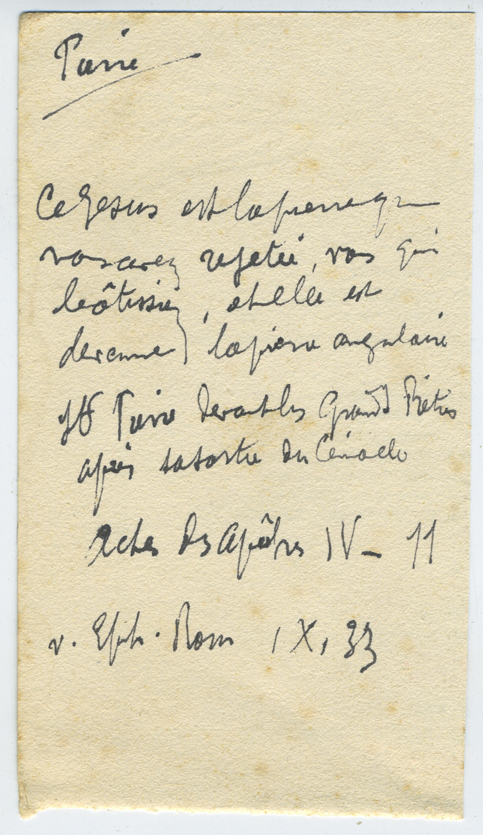 Pierre
Ce Jesus est la pierre que
vous avez rejetée, vous qui
bâtissiez, et elle est
devenue la pierre angulaire
St Pierre devant les Grands Prêtres
après sa sortie du Cénacle
Actes des Apôtres IV - 11
v. Eph. Rom IX, 33